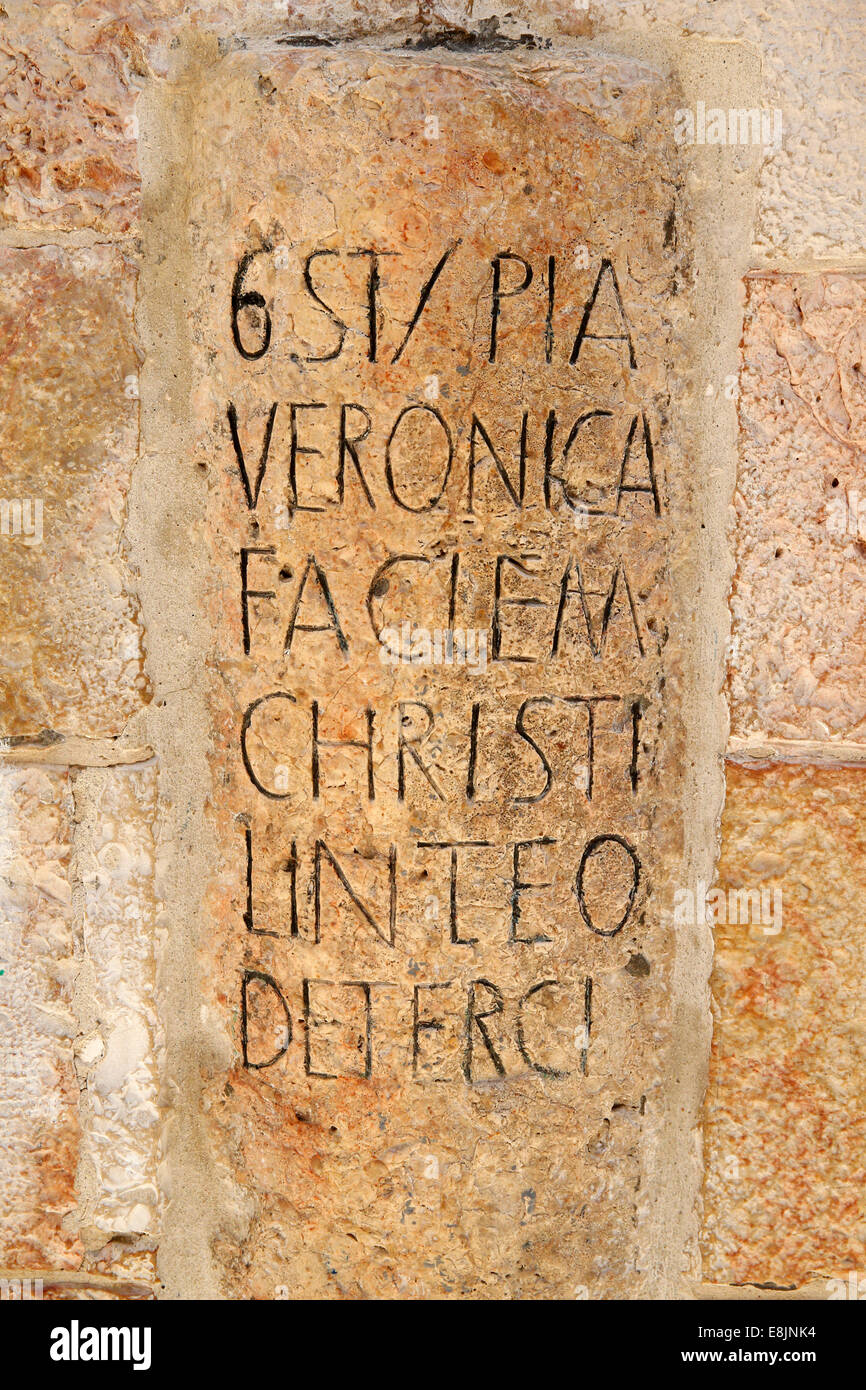 6 ST/ PIA
VERONICA
FACIEM
CHRISTI
LINTEO
DETERCI
alamy
Image ID: E8JNK4
www.alamy.com